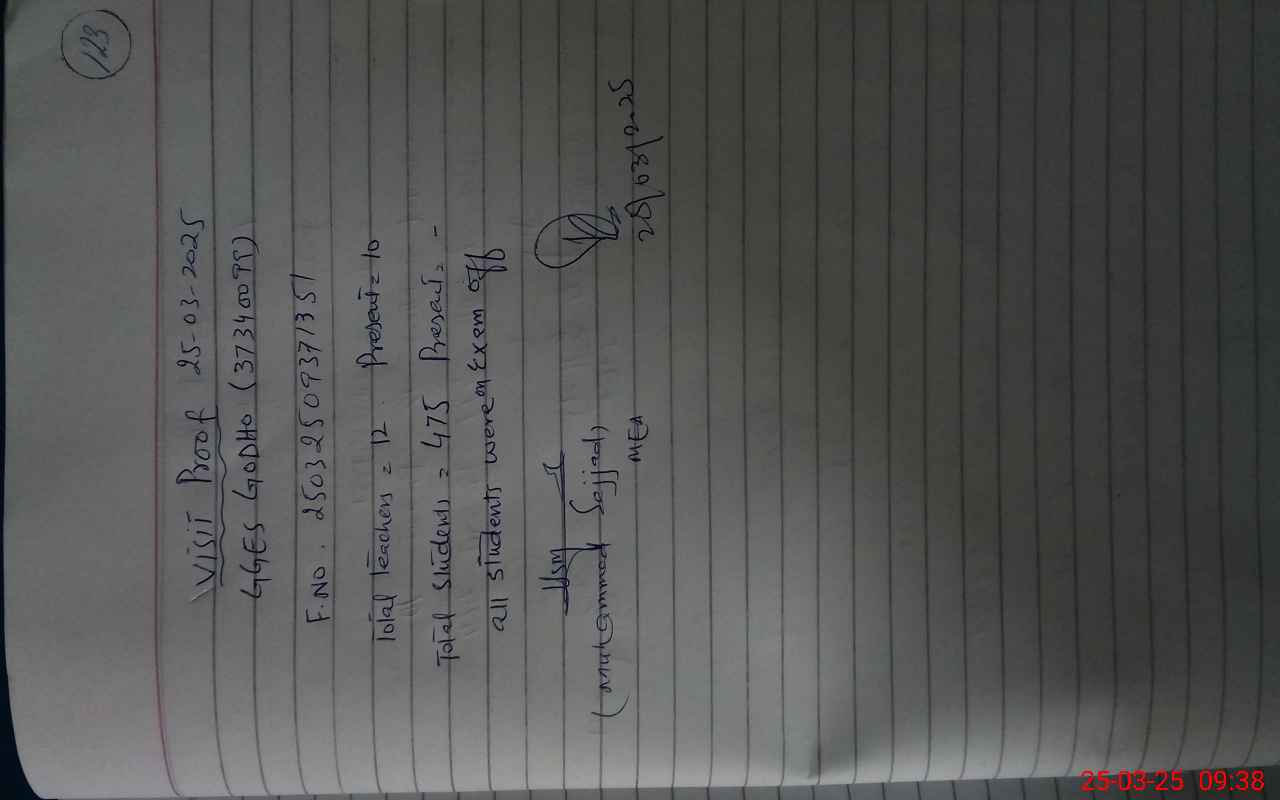 123
Visit Proof 25-03-2025
GGES GODHO (37340099)
F.No. 25032509371351
Total Teachers = 12 Present = 10
Total Students = 475 Present = -
all students were on Exam off
(Muhammad Sajjad)
MEA
25/03/2025
25-03-25 09:38